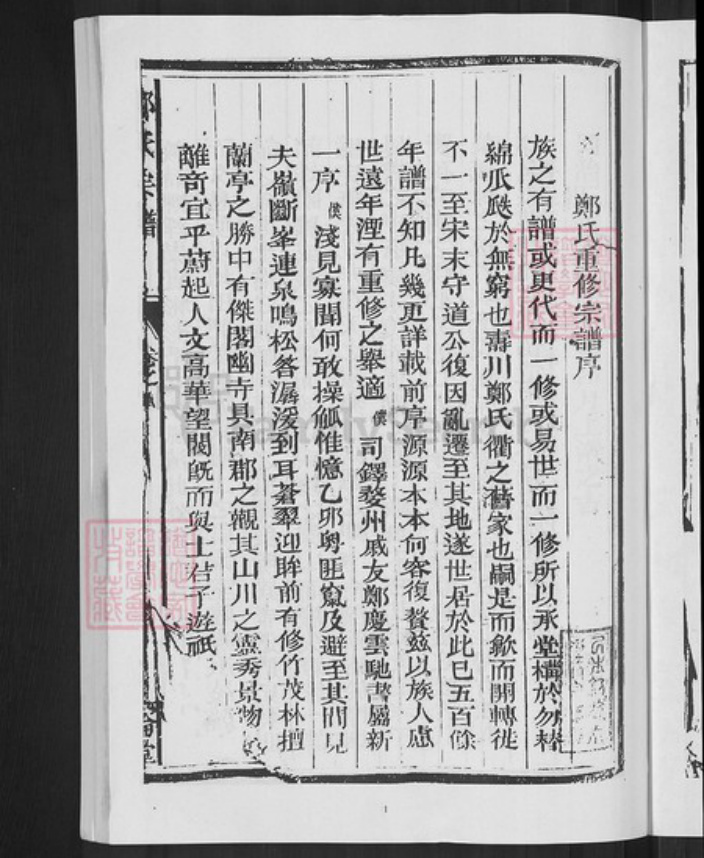 鄭氏重修宗譜序
族之有譜或更代而一修或易世而一修所以承堂構於勿替
綿瓜瓞於無窮也壽川鄭氏衢之舊家也嗣是而歙而開轉徙
不一至宋末守道公復因亂遷至其地遂世居於此已五百餘
年譜不知凡幾更詳載前序源源本本何容復贅茲以族人慮
世遠年湮有重修之舉適僕司鐸婺州戚友鄭慶雲馳書屬新
一序僕淺見寡聞何敢操觚惟憶乙卯粵匪竄及避至其間見
夫嶺斷峯連泉鳴松答潺湲到耳蒼翠迎眸前有修竹茂林擅
蘭亭之勝中有傑閣幽寺具南郡之觀其山川之靈秀景物
離奇宜乎蔚起人文高華望閥既而與上君子遊祇
氏宗譜